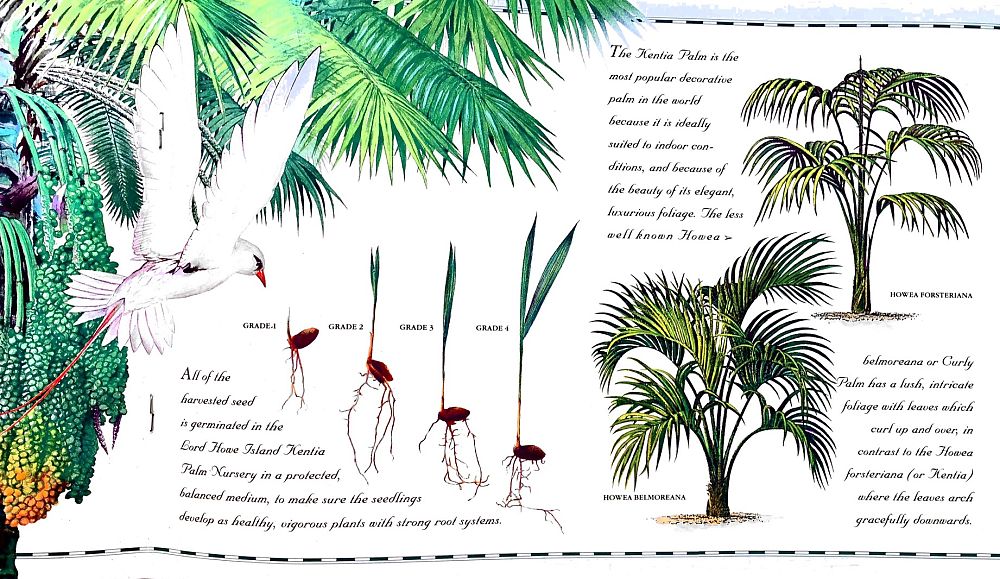 The Kentia Palm is the
most popular decorative
palm in the world
because it is ideally
suited to indoor con-
ditions, and because of
the beauty of its elegant,
luxurious foliage. The less
well known Howea ➢
HOWEA FORSTERIANA
GRADE 1
GRADE 2
GRADE 3
GRADE 4
All of the
harvested seed
is germinated in the
Lord Howe Island Kentia
Palm Nursery in a protected,
balanced medium, to make sure the seedlings
develop as healthy, vigorous plants with strong root systems.
HOWEA BELMOREANA
belmoreana or Curly
Palm has a lush, intricate
foliage with leaves which
curl up and over, in
contrast to the Howea
forsteriana (or Kentia)
where the leaves arch
gracefully downwards.